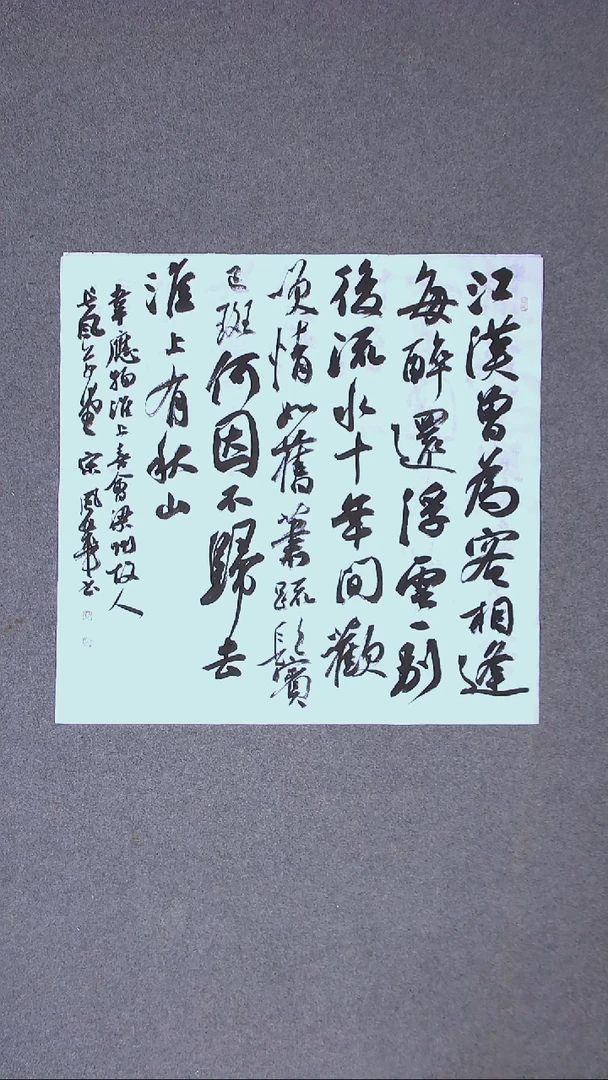 江漢曾為客相逢
每醉還浮雲一別
後流水十年間歡
咲情如舊蕭疏鬢
已斑何因不歸去
淮上有秋山
韋應物淮上喜會梁州故人
宋風